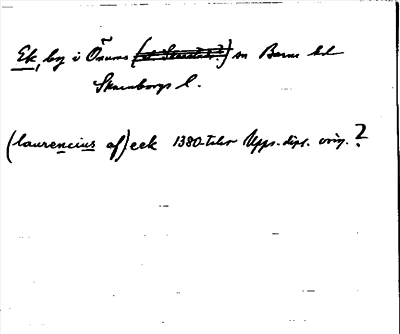 Ek, by i Önums sn Barne hd
Skaraborgs l.
(laurencius af) eek 1380-talet Upps. dipl. orig. ?